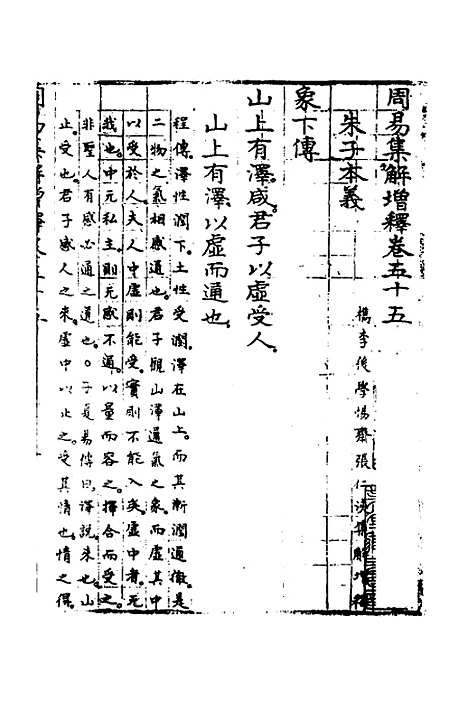 周易集解增釋卷五十五
檇李後學惕齋張仁浹集解增釋
朱子本義
象下傳
山上有澤咸君子以虛受人
山上有澤以虛而通也
程傳澤性潤下土性受潤澤在山上而其漸潤通徹是
二物之氣相感通也君子觀山澤通氣之象而虛其中
以受於人夫人中虛則能受實則不能入矣虛中者无
我也中无私主則无感不通以量而容之擇合而受之
非聖人有感必通之道也○子夏易傳曰澤說來也山
止受也君子感人之來虛中以止之受其情也情之得